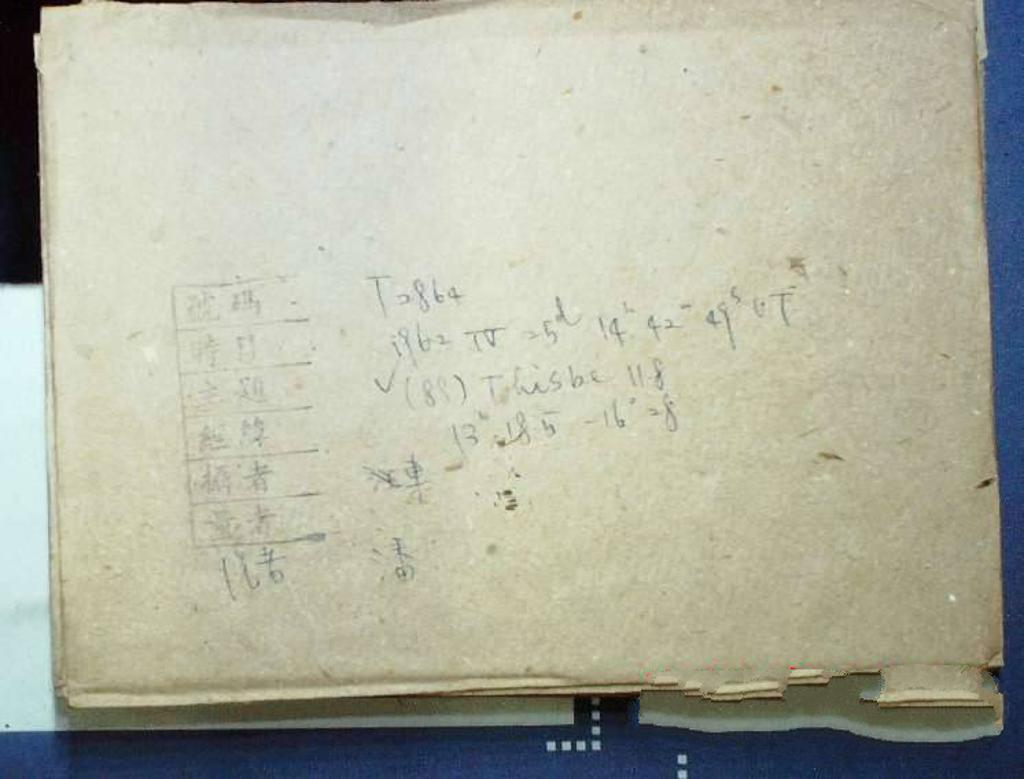 號碼 T2864
時日 1962 IV 25ᵈ 14ʰ 42ᵐ 49ˢ UT
主題 √(88) Thisbe 118
經緯 13ʰ 18.5 -16° 28
攝者
量者
化者 潘